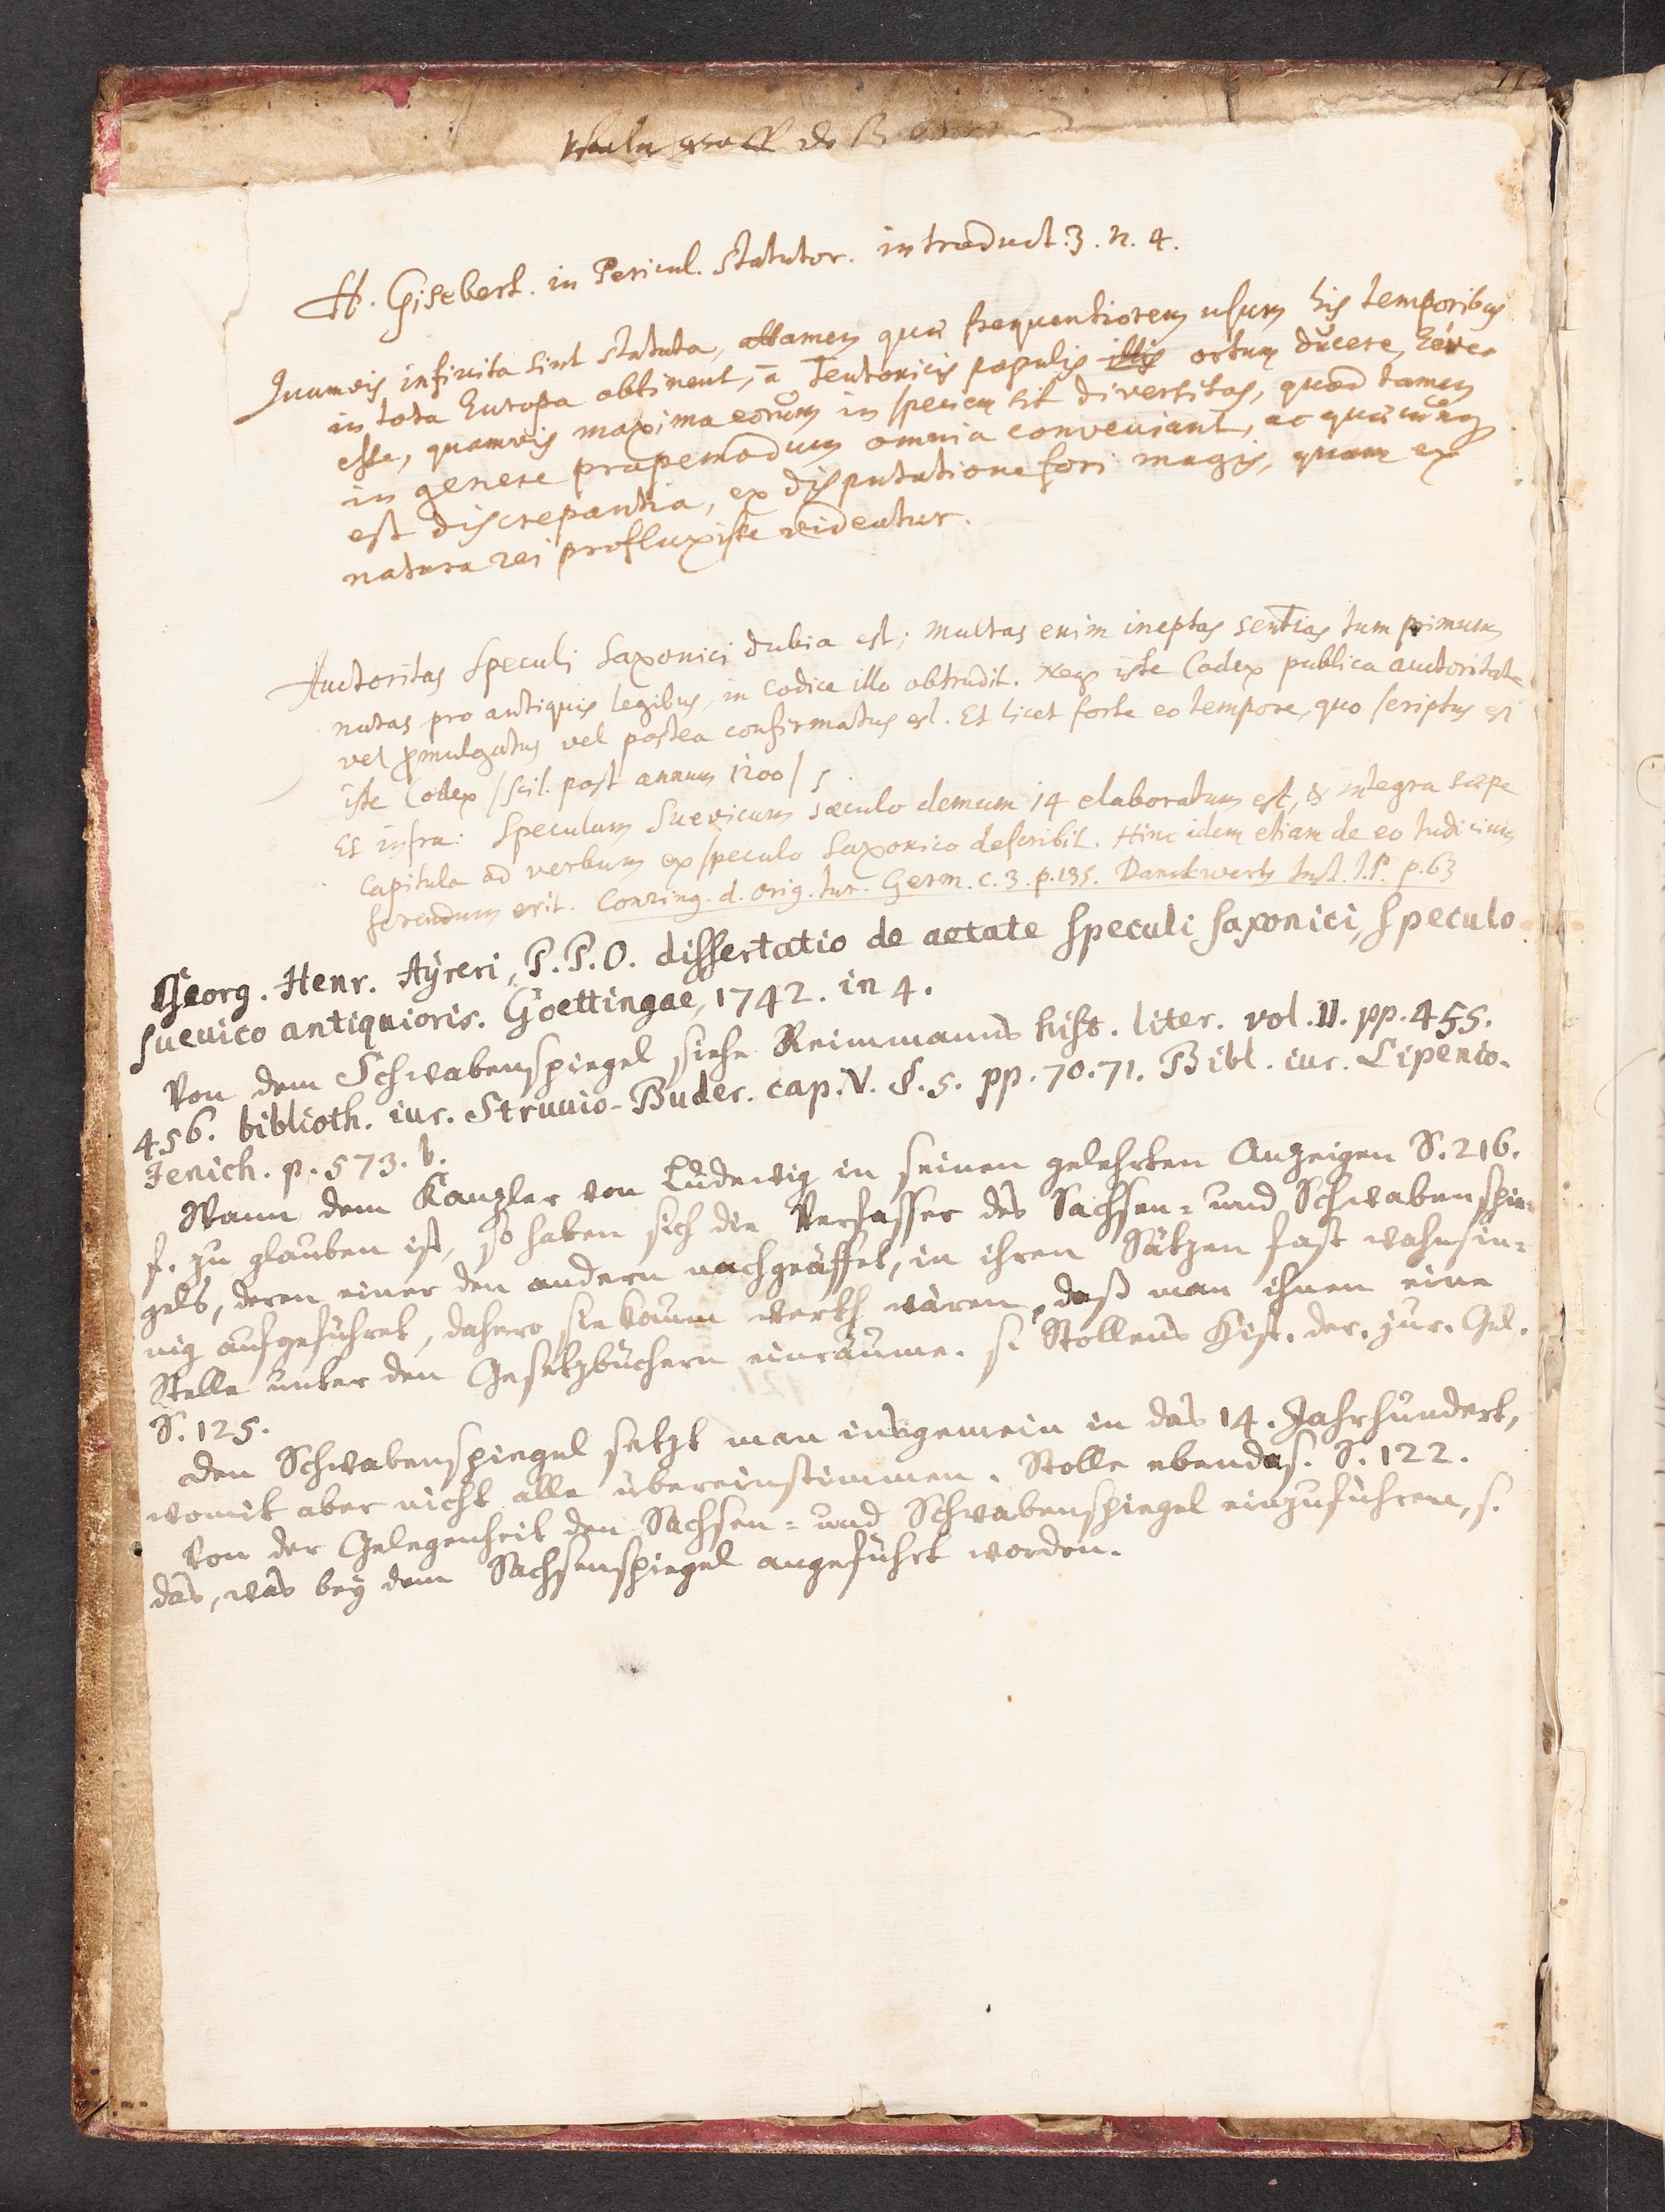 H. Gisebert. in Pericul. Statutor. introduct. 3. n. 4.
Quamvis infinita sint statuta, attamen quæ frequentiorem usum his temporibus
in tota Europa obtinent, a Teutonicis populis ortum ducere,
esse, quamvis maxima eorum in speciem sit diversitas, quod tamen
in genere propemodum omnia conveniant, ac
est discrepantia, ex disputatione fori magis, quam ex
natura rei profluxisse videatur.
Auctoritas Speculi Saxonici dubia est; multas enim ineptas sentias tum primum
natas pro antiquis legibus, in codice illo obtrudit. Neq iste Codex publica auctoritate
vel promulgatus vel postea confirmatus est. Et licet forte eo tempore, quo scriptus est
iste Codex /scil. post annum 1200/
Et infra: Speculum Suevicum sæculo demum 14 elaboratum est, & integra sæpe
Capitula ad verbum ex speculo Saxonico describit. Hinc idem etiam de eo Iudicium
ferendum erit. Conring. d. orig. Iur. Germ. c. 3. p. 135. Danckwerts Inst. I. P. p. 63
Georg. Henr. Aÿreri, P. P. O. dissertatio de aetate speculi saxonici, speculo
suevico antiquioris. Goettingae, 1742. in 4.
Von dem Schwabenspiegel siehe Reimmanns hist. liter. vol. II. pp. 455.
456. biblioth. iur. Struuio-Buder. cap. V. §. 5. pp. 70. 71. Bibl. iur. Lipenio-
Jenich. p. 573. b.
Wann dem Kanzler von Ludewig in seinen gelehrten Anzeigen S. 216.
f. zu glauben ist, so haben sich die Verfasser des Sachsen- und Schwabenspie-
gels, deren einer den andern nachgeäffet, in ihren Sätzen fast wahnsin-
nig aufgeführet, dahero sie kaum werth wären, daß man ihnen eine
Stelle unter den Gesetzbüchern einräume. s. Stollens Hist. der. jur. Gel.
S. 125.
Den Schwabenspiegel setzt man insgemein in das 14. Jahrhundert,
womit aber nicht alle übereinstimmen. Stolle ebendas. S. 122.
Von der Gelegenheit den Sachsen- und Schwabenspiegel einzuführen, s.
das, was bey dem Sachsenspiegel angeführt worden.